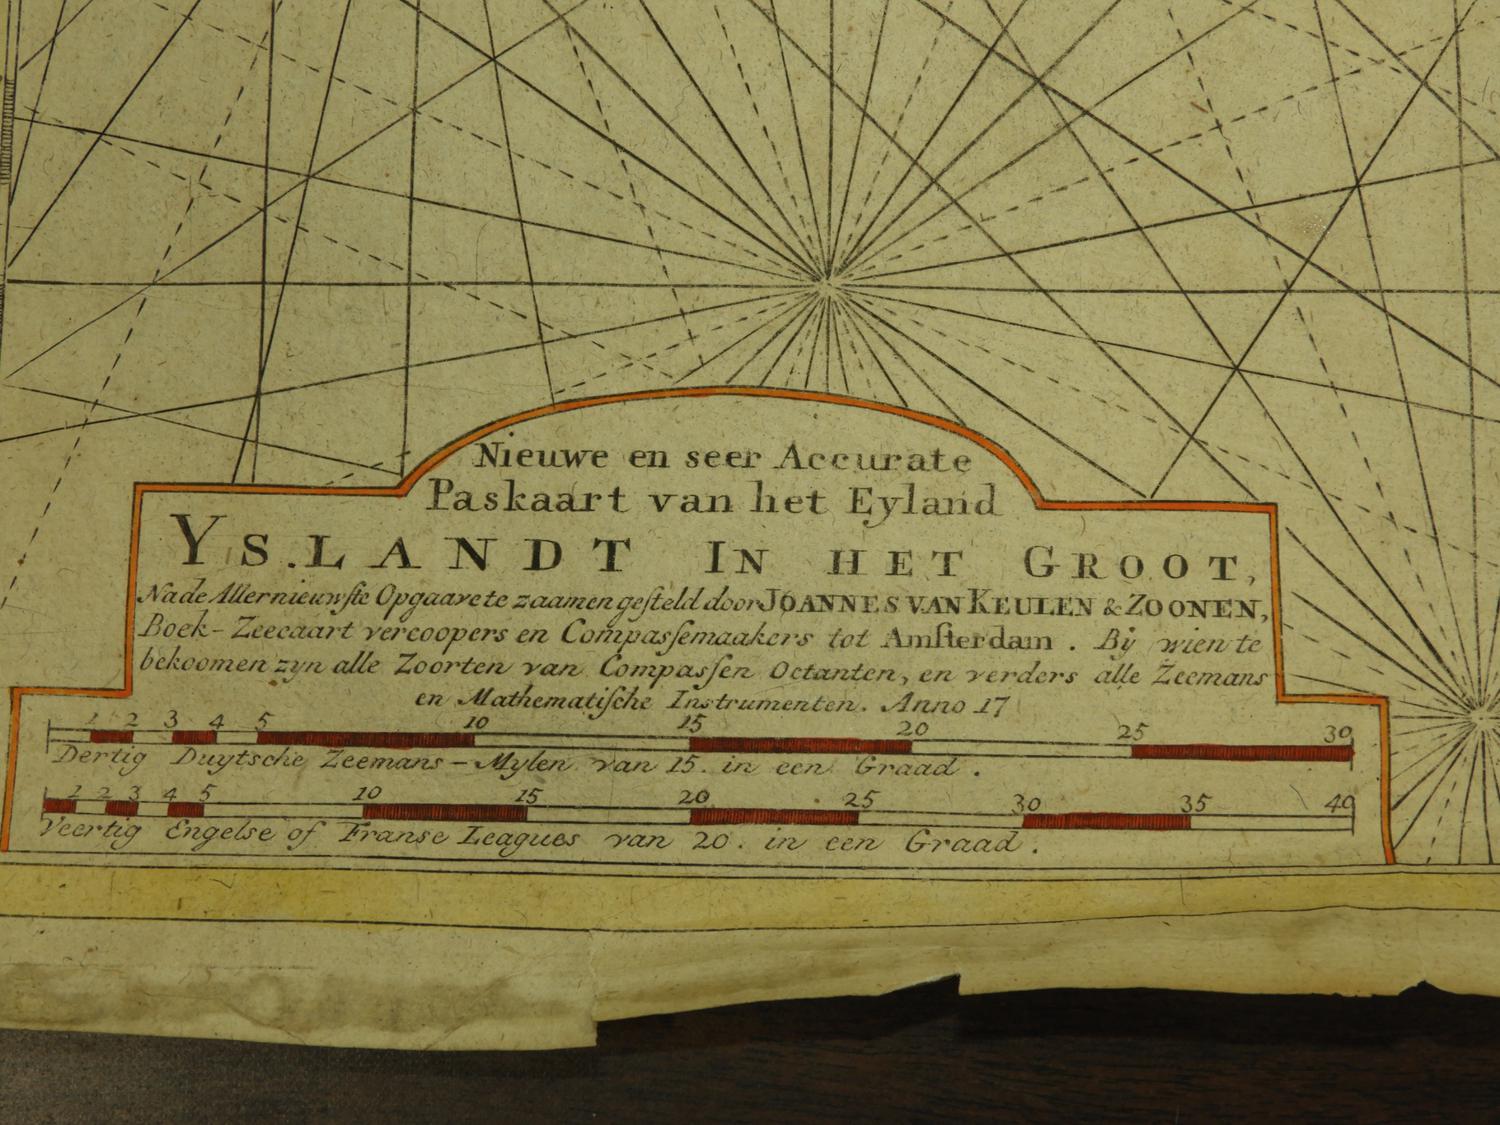 Nieuwe en seer Accurate
Paskaart van het Eyland
YS.LANDT IN HET GROOT,
Na de Allernieuwſte Opgaave te zaamen geſteld door JOANNES VAN KEULEN & ZOONEN,
Boek-Zeecaart vercoopers en Compasſemaakers tot Amſterdam. By wien te
bekoomen zyn alle Zoorten van Compasſen Octanten, en verders alle Zeemans
en Mathematiſche Instrumenten. Anno 17
1 2 3 4 5 10 15 20 25 30
Dertig Duytsche Zeemans-Mylen van 15. in een Graad.
1 2 3 4 5 10 15 20 25 30 35 40
Veertig Engelse of Franse Leagues van 20. in een Graad.